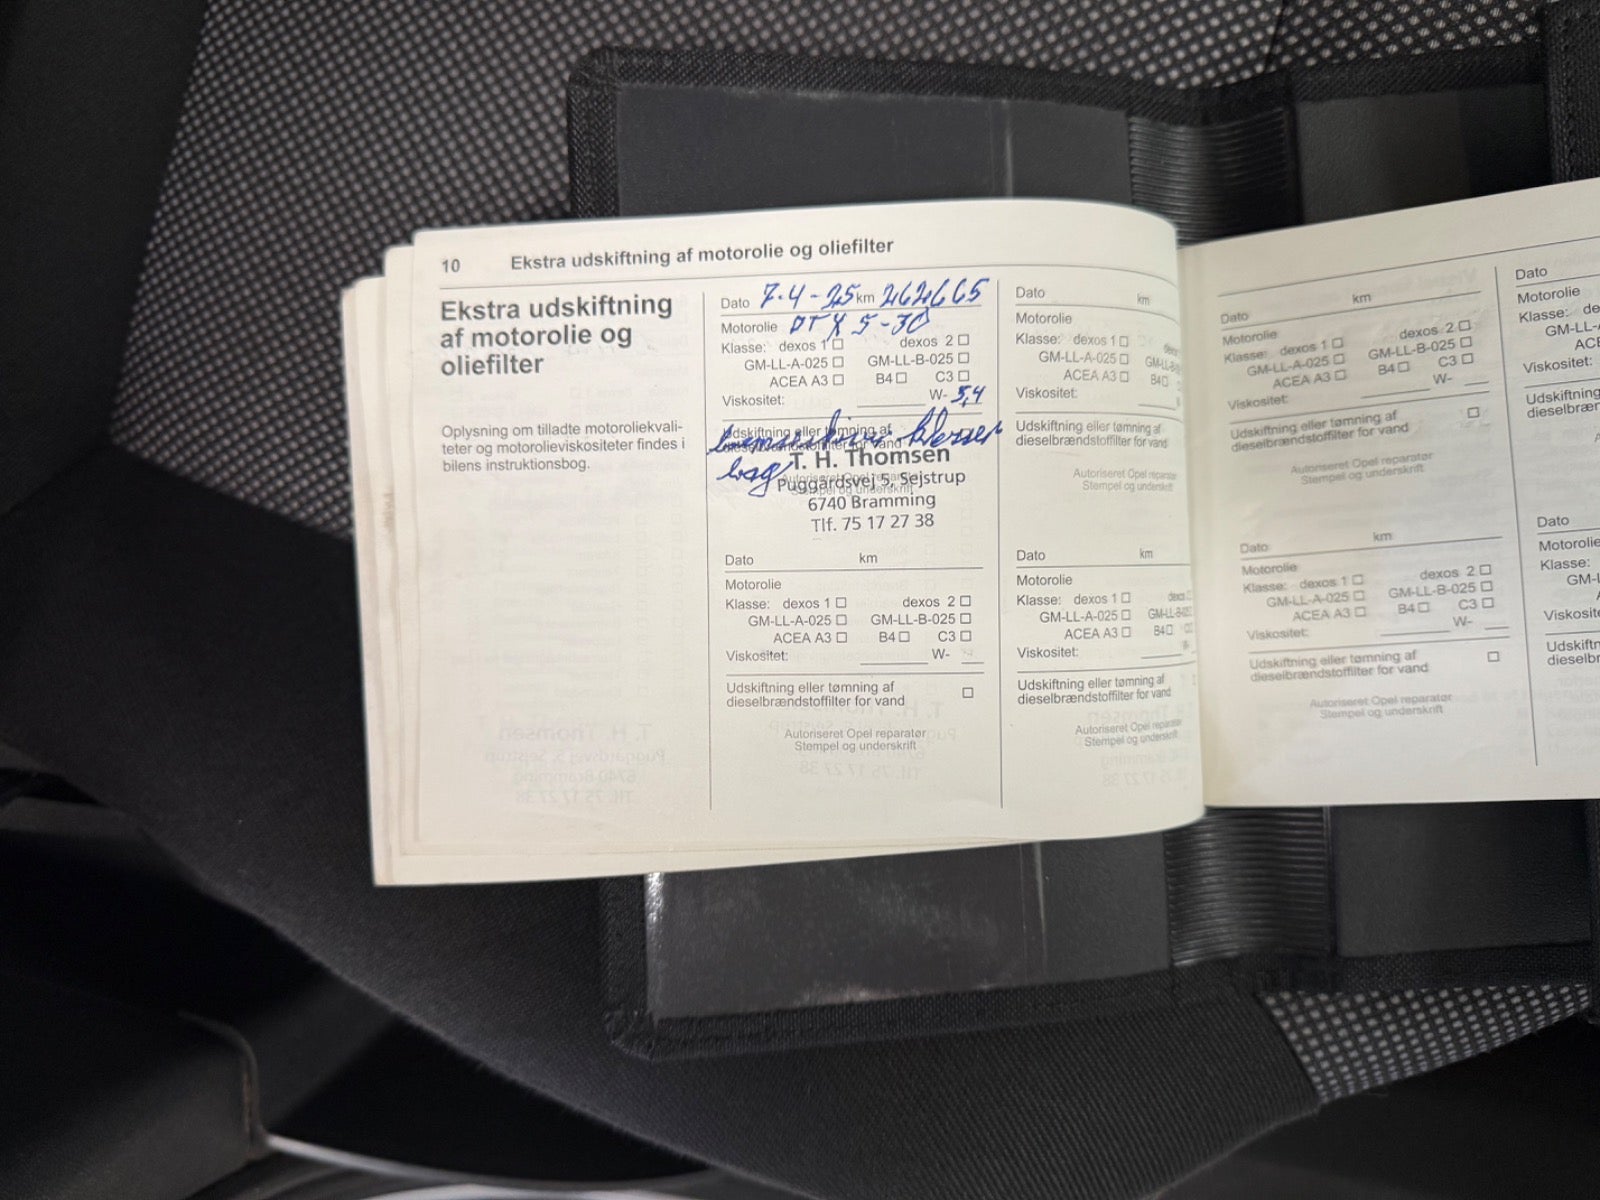 10 Ekstra udskiftning af motorolie og oliefilter
Ekstra udskiftning
af motorolie og
oliefilter
Oplysning om tilladte motoroliekvali-
teter og motorolieviskositeter findes i
bilens instruktionsbog.
Dato 7-4-25 km 262665
Motorolie DTX 5-30
Klasse: dexos 1 dexos 2
GM-LL-A-025 GM-LL-B-025
ACEA A3 B4 C3
Viskositet: W- 5,4
Udskiftning eller tømning af
dieselbrændstoffilter for vand
bremseskiver klodser
bag
T. H. Thomsen
Puggårdsvej 5, Sejstrup
6740 Bramming
Tlf. 75 17 27 38
Autoriseret Opel reparatør
Stempel og underskrift
Dato km
Motorolie
Klasse: dexos 1 dexos 2
GM-LL-A-025 GM-LL-B-025
ACEA A3 B4 C3
Viskositet: W-
Udskiftning eller tømning af
dieselbrændstoffilter for vand
Autoriseret Opel reparatør
Stempel og underskrift
Dato km
Motorolie
Klasse: dexos 1
GM-LL-A-025
ACEA A3 B4
Viskositet:
Udskiftning eller tømning af
dieselbrændstoffilter for vand
Autoriseret Opel reparatør
Stempel og underskrift
Dato km
Motorolie
Klasse: dexos 1
GM-LL-A-025
ACEA A3 B4
Viskositet:
Udskiftning eller tømning af
dieselbrændstoffilter for vand
Autoriseret Opel reparatør
Stempel og underskrift
Dato km
Motorolie
Klasse: dexos 1 dexos 2
GM-LL-A-025 GM-LL-B-025
ACEA A3 B4 C3
Viskositet: W-
Udskiftning eller tømning af
dieselbrændstoffilter for vand
Autoriseret Opel reparatør
Stempel og underskrift
Dato km
Motorolie
Klasse: dexos 1 dexos 2
GM-LL-A-025 GM-LL-B-025
ACEA A3 B4 C3
Viskositet: W-
Udskiftning eller tømning af
dieselbrændstoffilter for vand
Autoriseret Opel reparatør
Stempel og underskrift
Dato
Motorolie
Klasse:
Viskositet:
Udskiftning
Dato
Motorolie
Klasse: